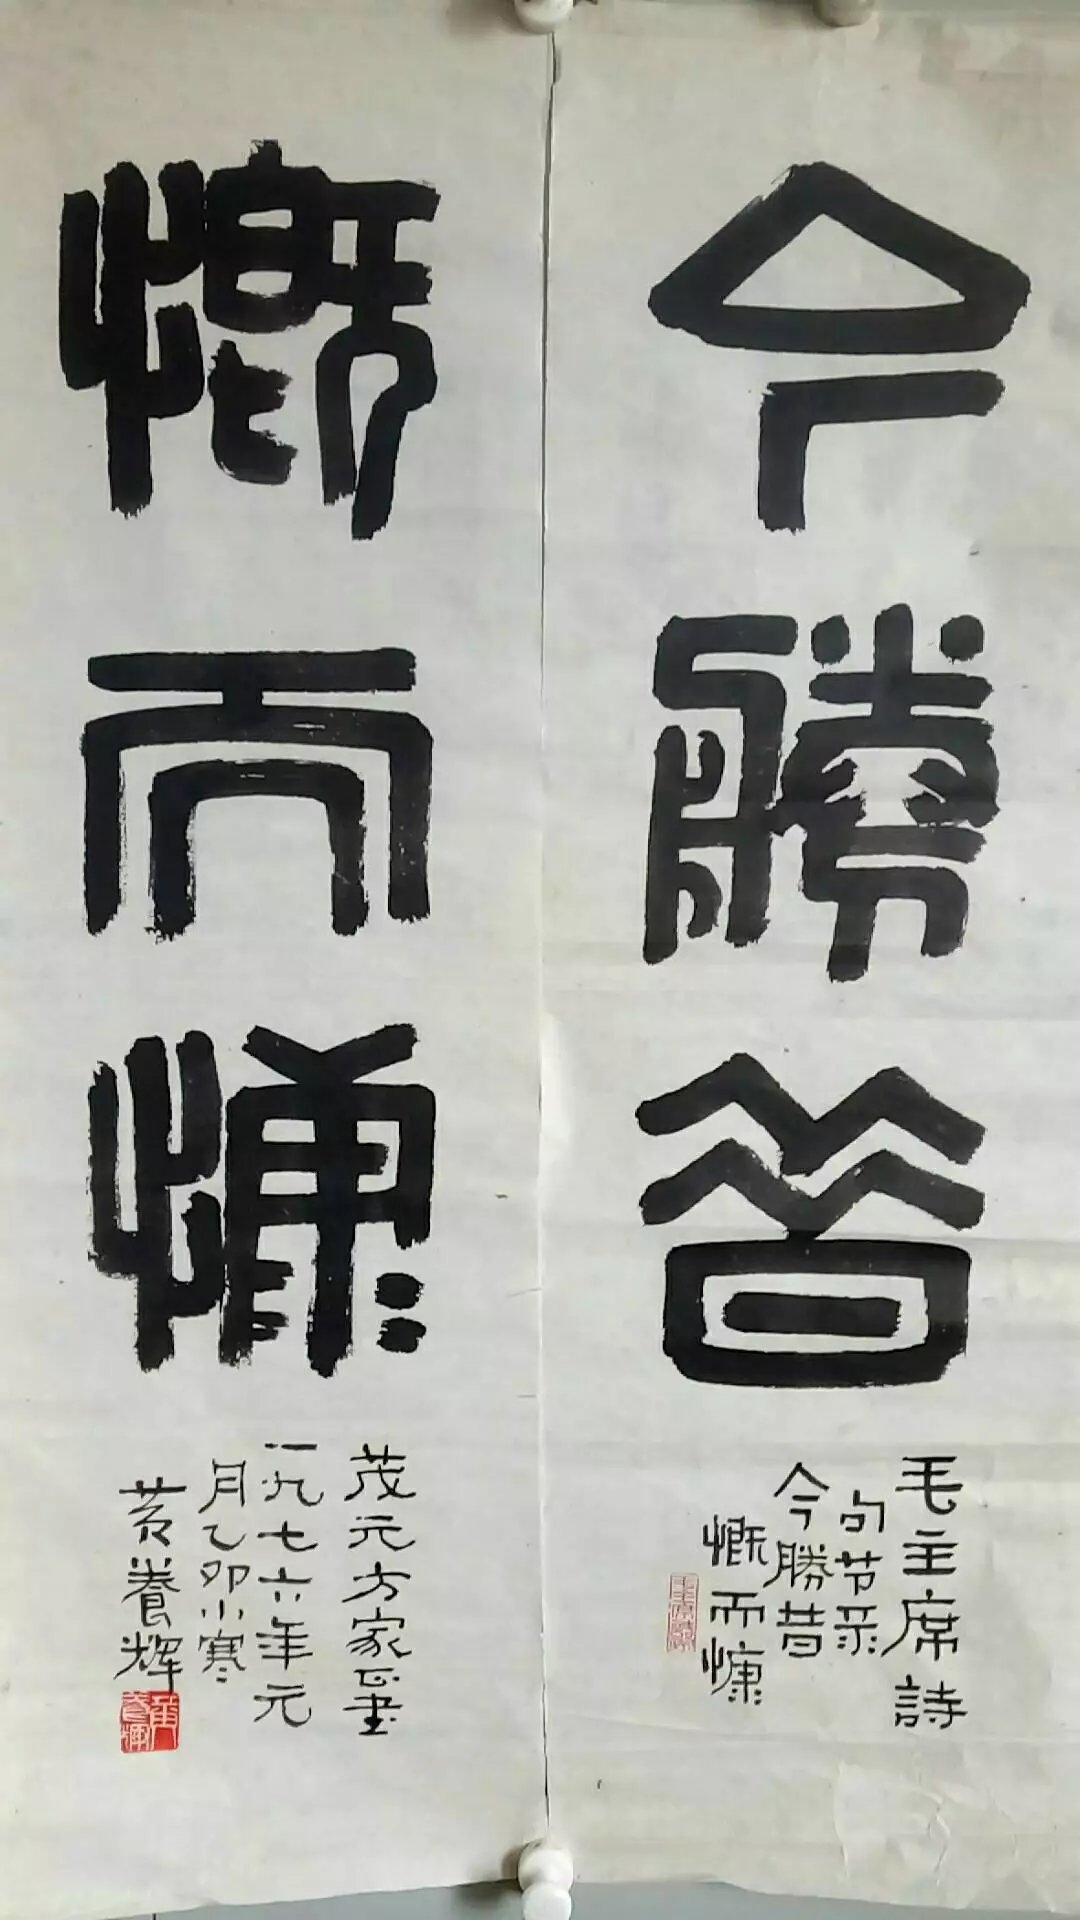 今勝昔
毛主席詩
句节录
今勝昔
慨而慷
慨而慷
茂元方家正
一九七六年元
月乙卯小寒
黄養辉
黄養輝